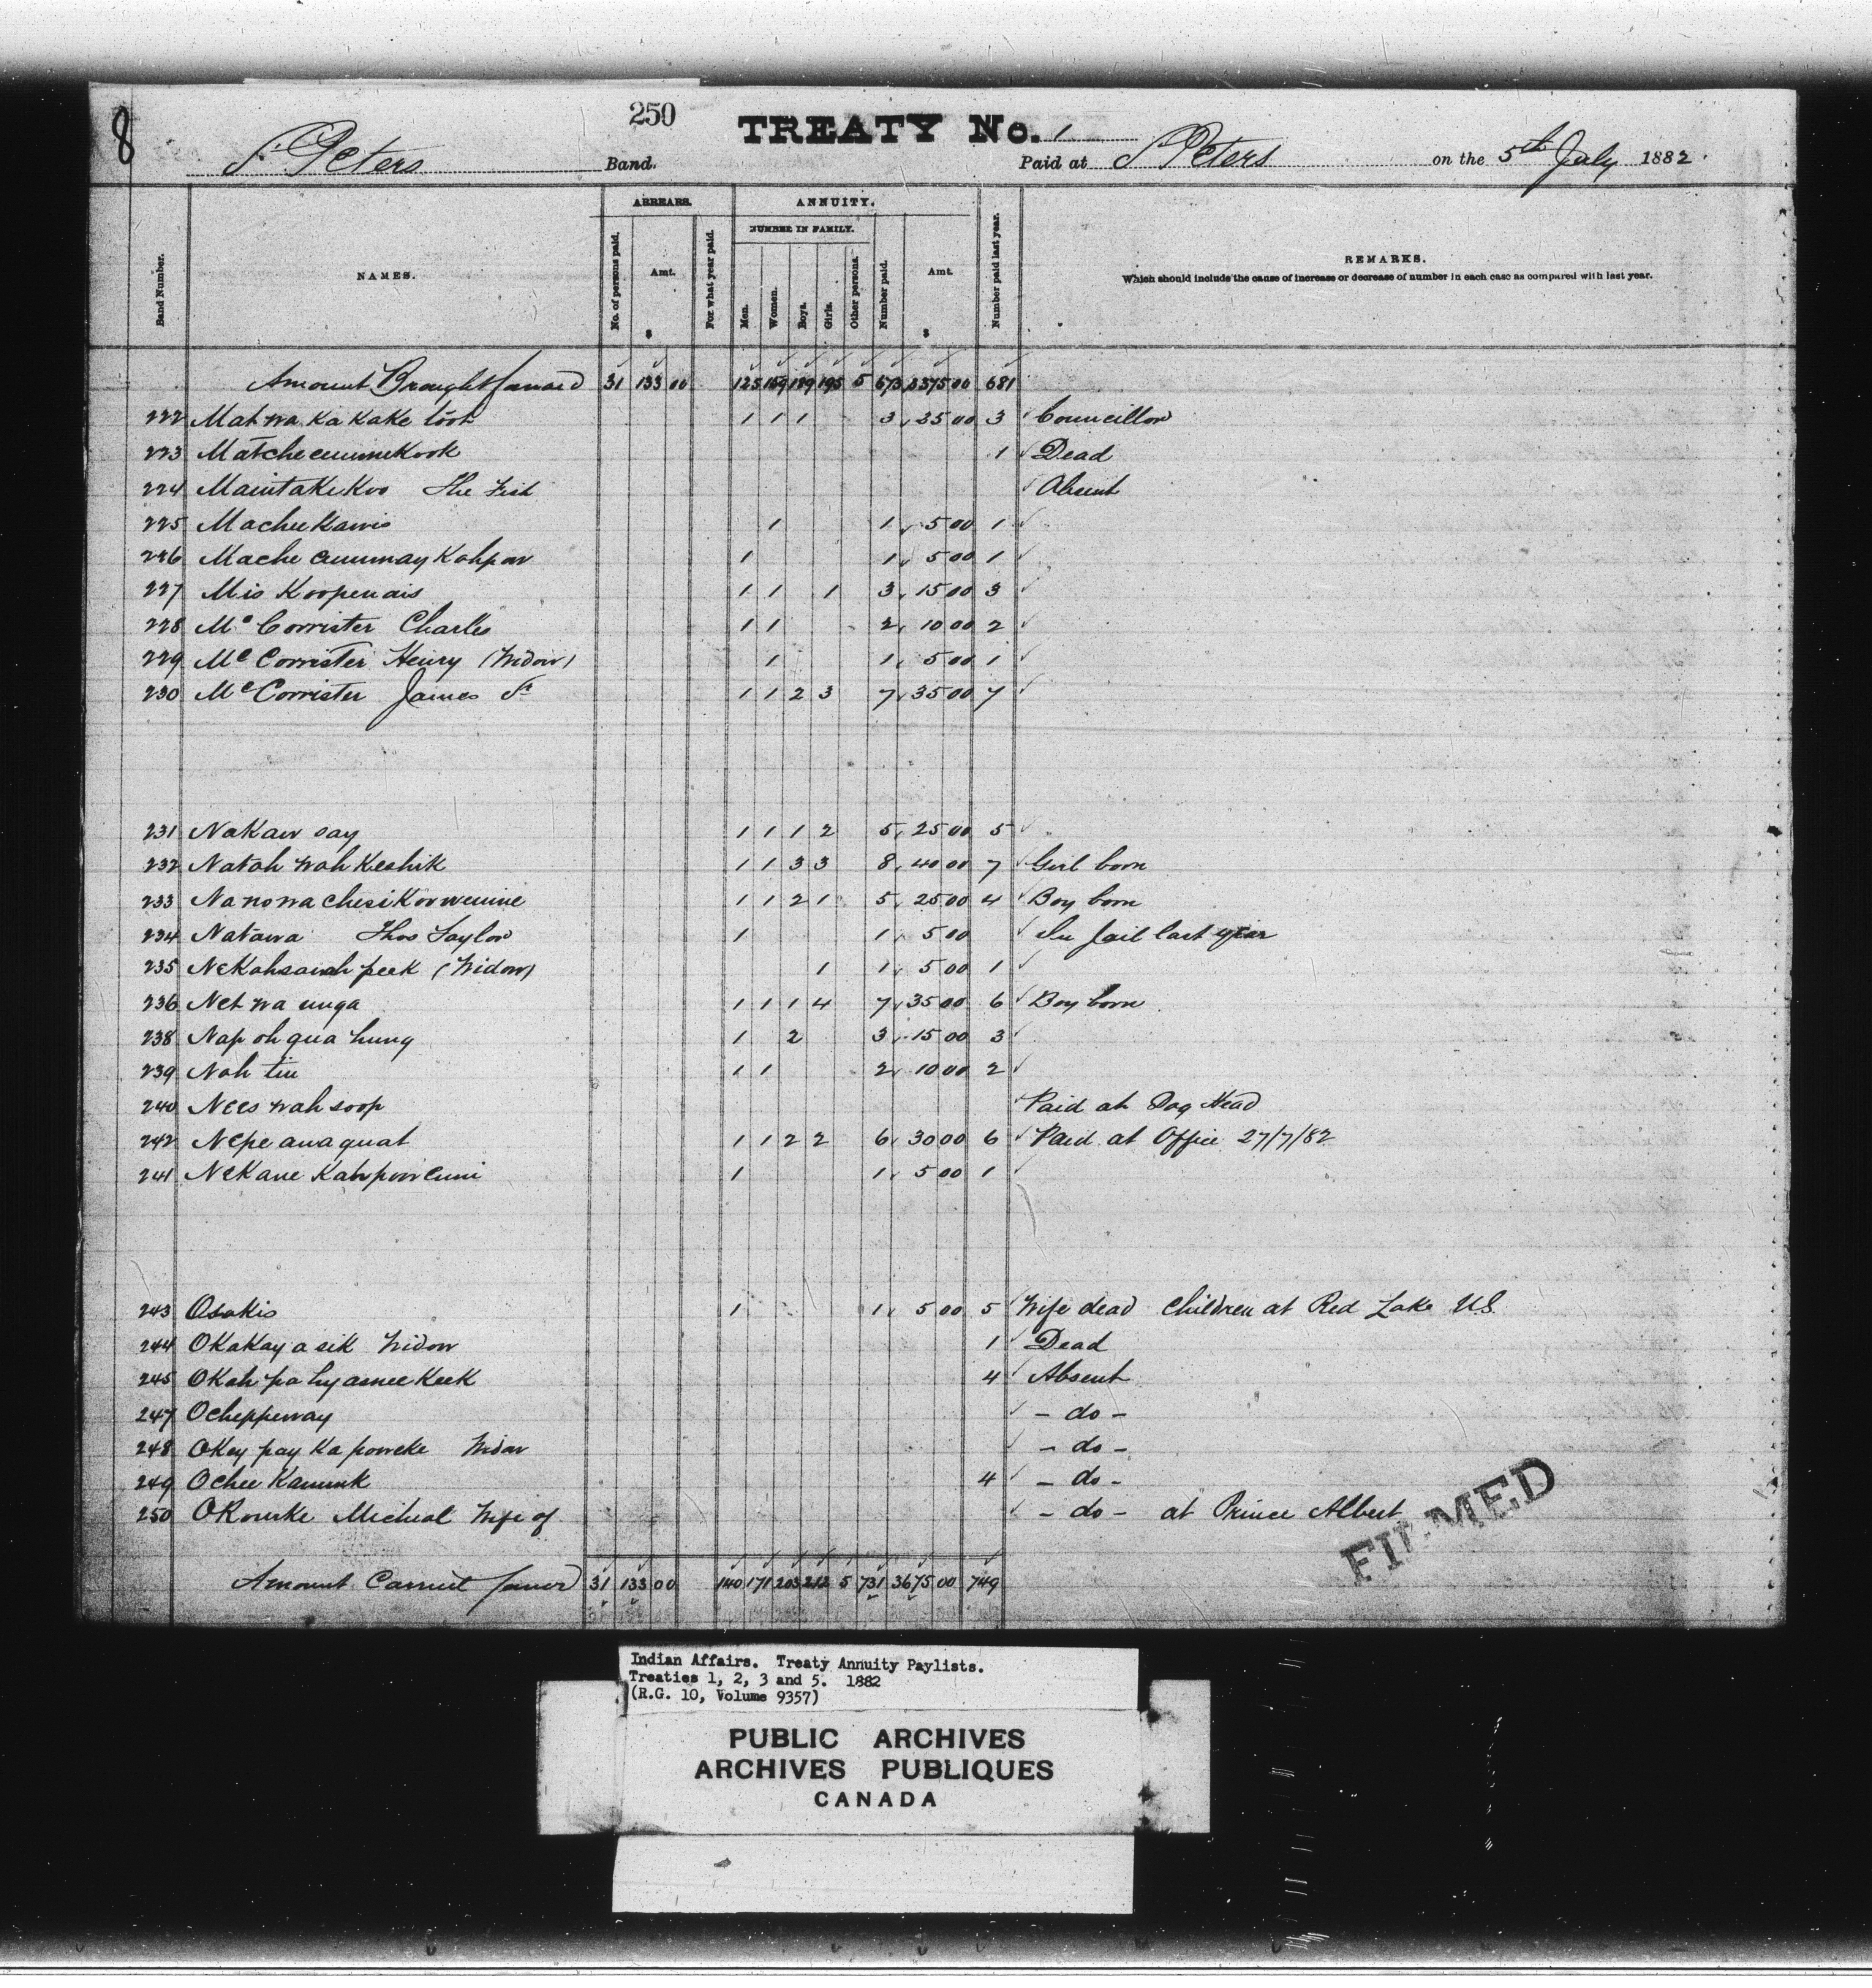 8
250
TREATY No. 1
St Peters Band. Paid at St Peters on the 5th July 1882.
Band Number. NAMES. ARREARS. No. of persons paid. Amt. $ For what year paid. ANNUITY. NUMBER IN FAMILY. Men. Women. Boys. Girls. Other persons. Number paid. Amt. $ Number paid last year. REMARKS.
Which should include the cause of increase or decrease of number in each case as compared with last year.
Amount Brought forward 31 133 00 125 159 189 195 5 673 3375 00 681
222 Mah wa ka kake toot 1 1 1 3 25 00 3 Councillor
223 Matcheaummekook 1 Dead
224 Maintakekoo The Fish Absent
225 Macheekawis 1 1 5 00 1
226 Mache aummay Kahpow 1 1 5 00 1
227 Mis Koopenais 1 1 1 3 15 00 3
228 Mc Corrister Charles 1 1 2 10 00 2
229 Mc Corrister Henry (Widow) 1 1 5 00 1
230 Mc Corrister James Sr 1 1 2 3 7 35 00 7
231 Nakaw say 1 1 1 2 5 25 00 5
232 Natah wah Keshik 1 1 3 3 8 40 00 7 Girl born
233 Nanowachesikoowenine 1 1 2 1 5 25 00 4 Boy born
234 Natawa Thos Taylor 1 1 5 00 In Jail last year
235 Nekahsawah peek (Widow) 1 1 5 00 1
236 Net wa unga 1 1 1 4 7 35 00 6 Boy born
238 Nap oh qua hung 1 2 3 15 00 3
239 Nah tin 1 1 2 10 00 2
240 Nees wah soop Paid at Dog Head
242 Nepe anaquat 1 1 2 2 6 30 00 6 Paid at Office 27/7/82
241 Nekane Kahpow enni 1 1 5 00 1
243 Osakis 1 1 5 00 5 Wife dead Children at Red Lake U.S.
244 Okakay a sik Widow 1 Dead
245 Okah pa hyamee Keek 4 Absent
247 Ocheppeway - do -
248 Okey pay ka poweke Widow - do -
249 Ochee Kanunk 4 - do -
250 ORourke Micheal Wife of - do - at Prince Albert
Amount Carried forward 31 133 00 140 171 203 212 5 731 3675 00 749
FILMED
Indian Affairs. Treaty Annuity Paylists.
Treaties 1, 2, 3 and 5. 1882
(R.G. 10, Volume 9357)
PUBLIC ARCHIVES
ARCHIVES PUBLIQUES
CANADA